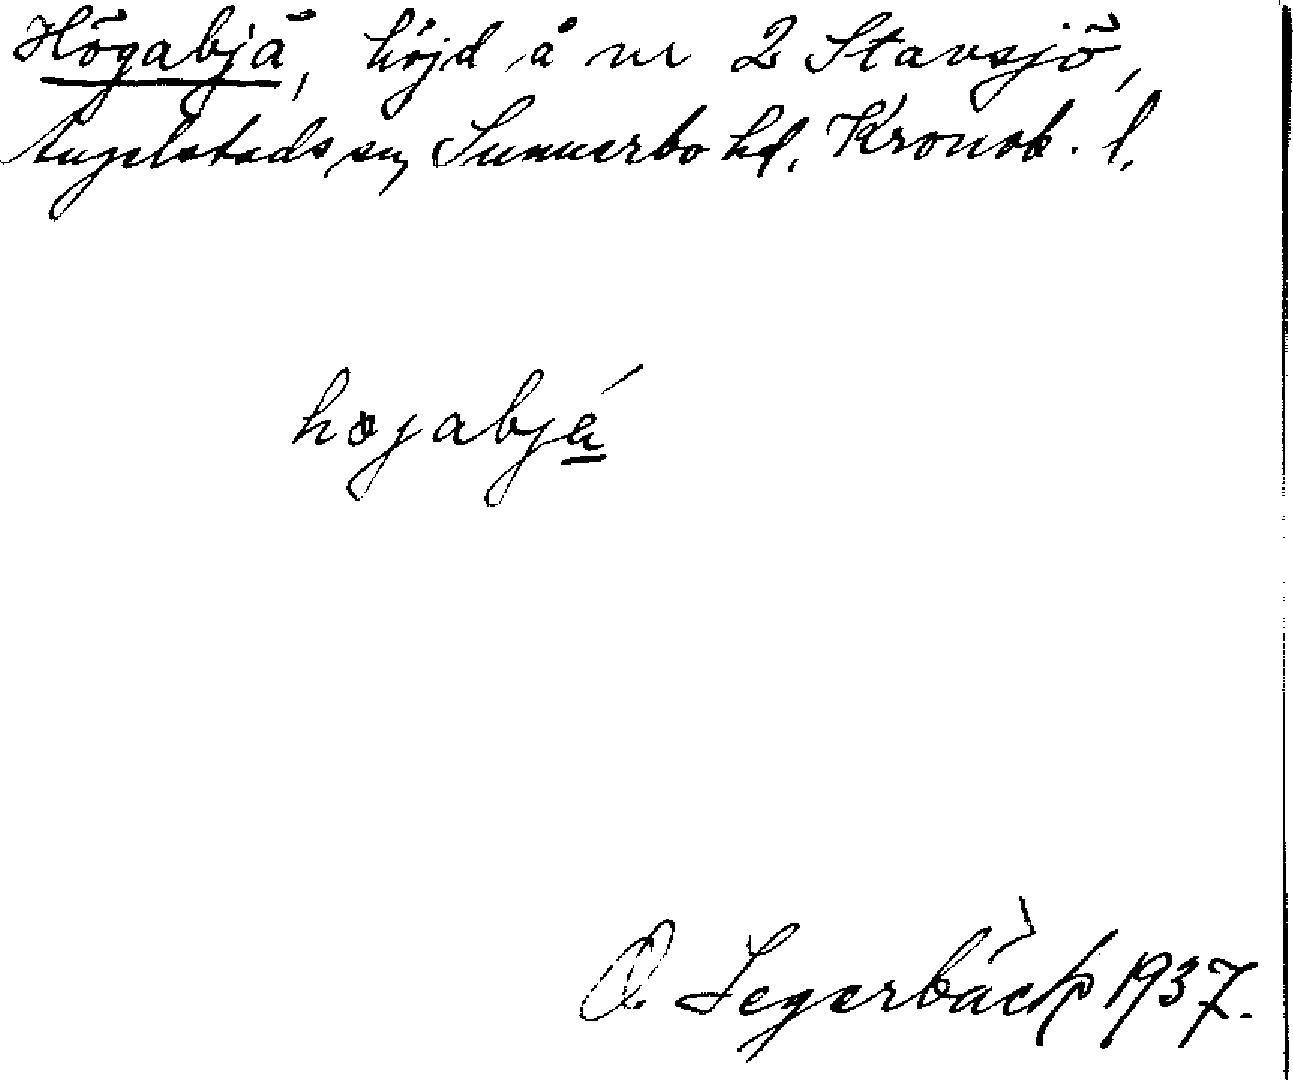 Högabjä, höjd å nr 2 Stavsjö,
Angelstads sn, Sunnerbo hd, Kronob. l.
højabjá
O Segerbäck 1937.